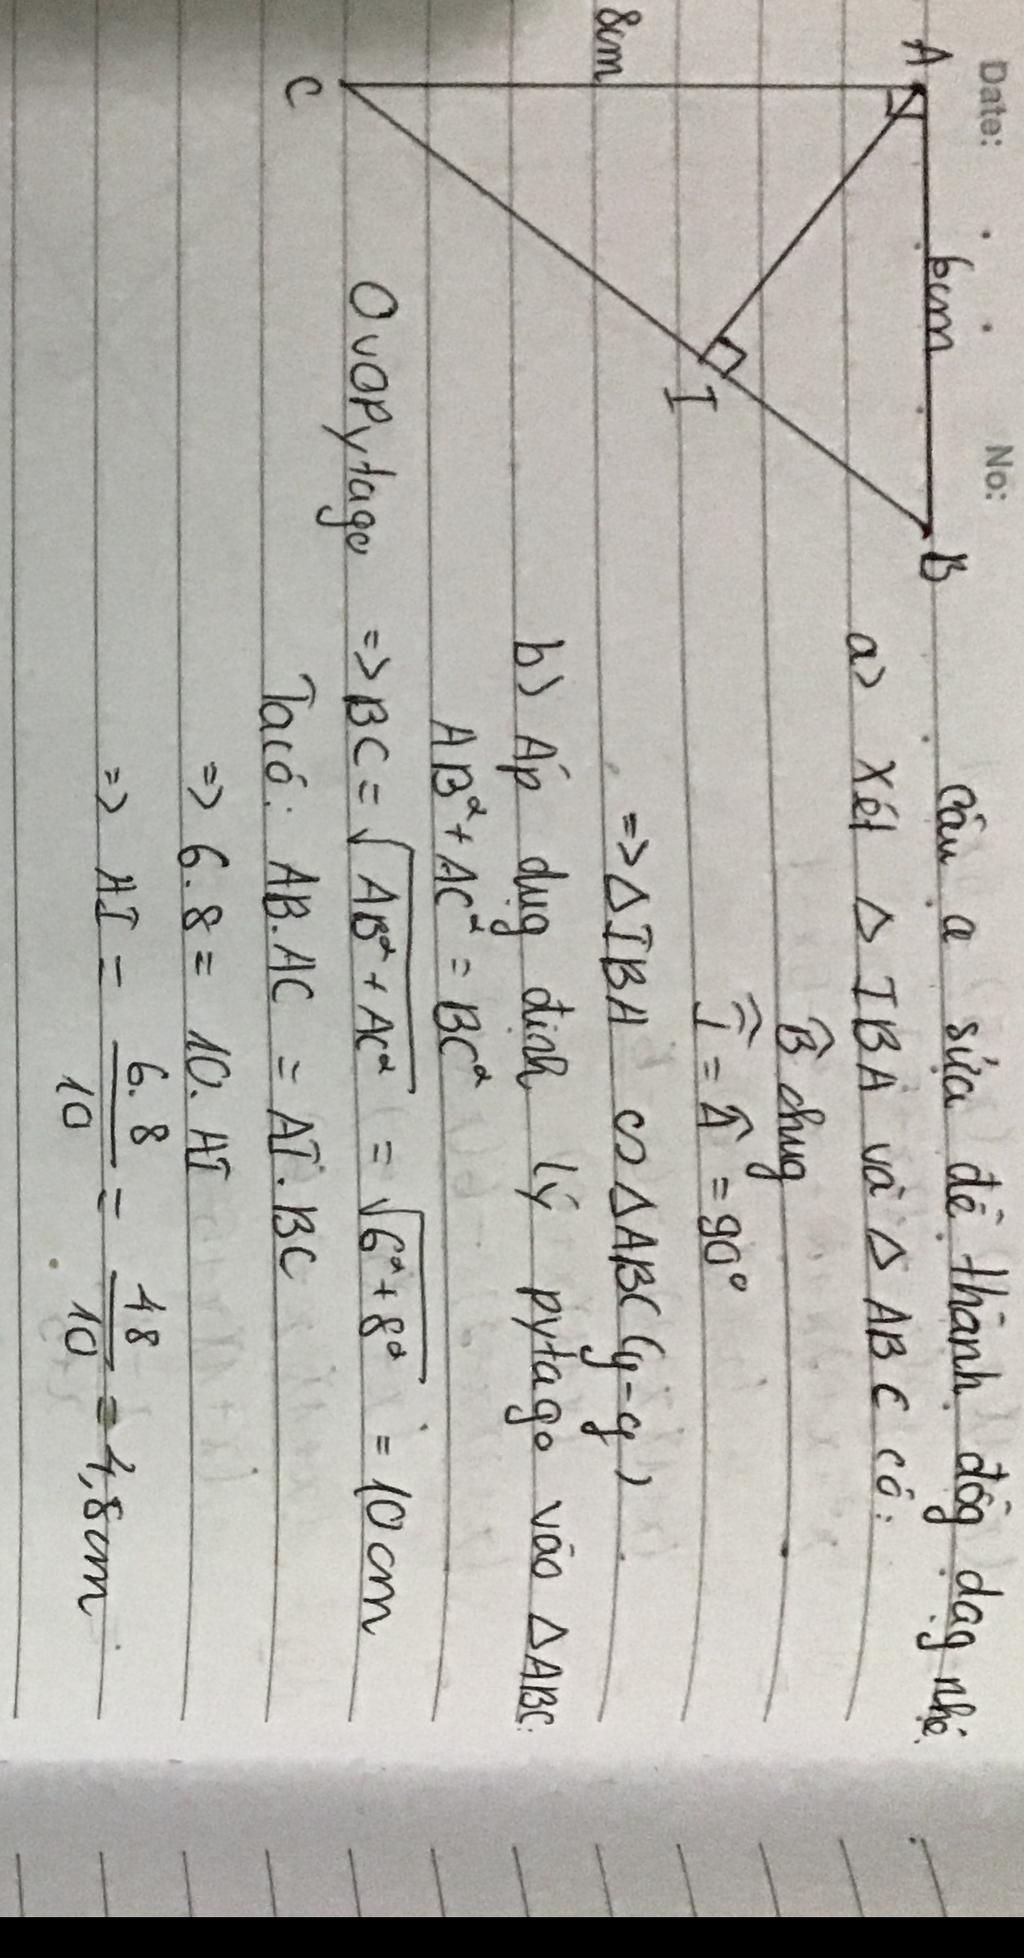 Date:
No:
A
6cm
B
8cm
I
C
câu a sửa đề thành đồg dạg nhé.
a> Xét △ IBA và △ ABC có:
B̂ chug
Î = Â = 90°
=> △IBA ∽ △ABC (g-g)
b> Áp dụg định lý pytago vào △ABC:
AB² + AC² = BC²
=> BC = √AB² + AC² = √6² + 8² = 10cm
Ta có: AB.AC = AI.BC
=> 6.8 = 10.AI
=> AI = 6.8/10 = 48/10 = 4,8cm